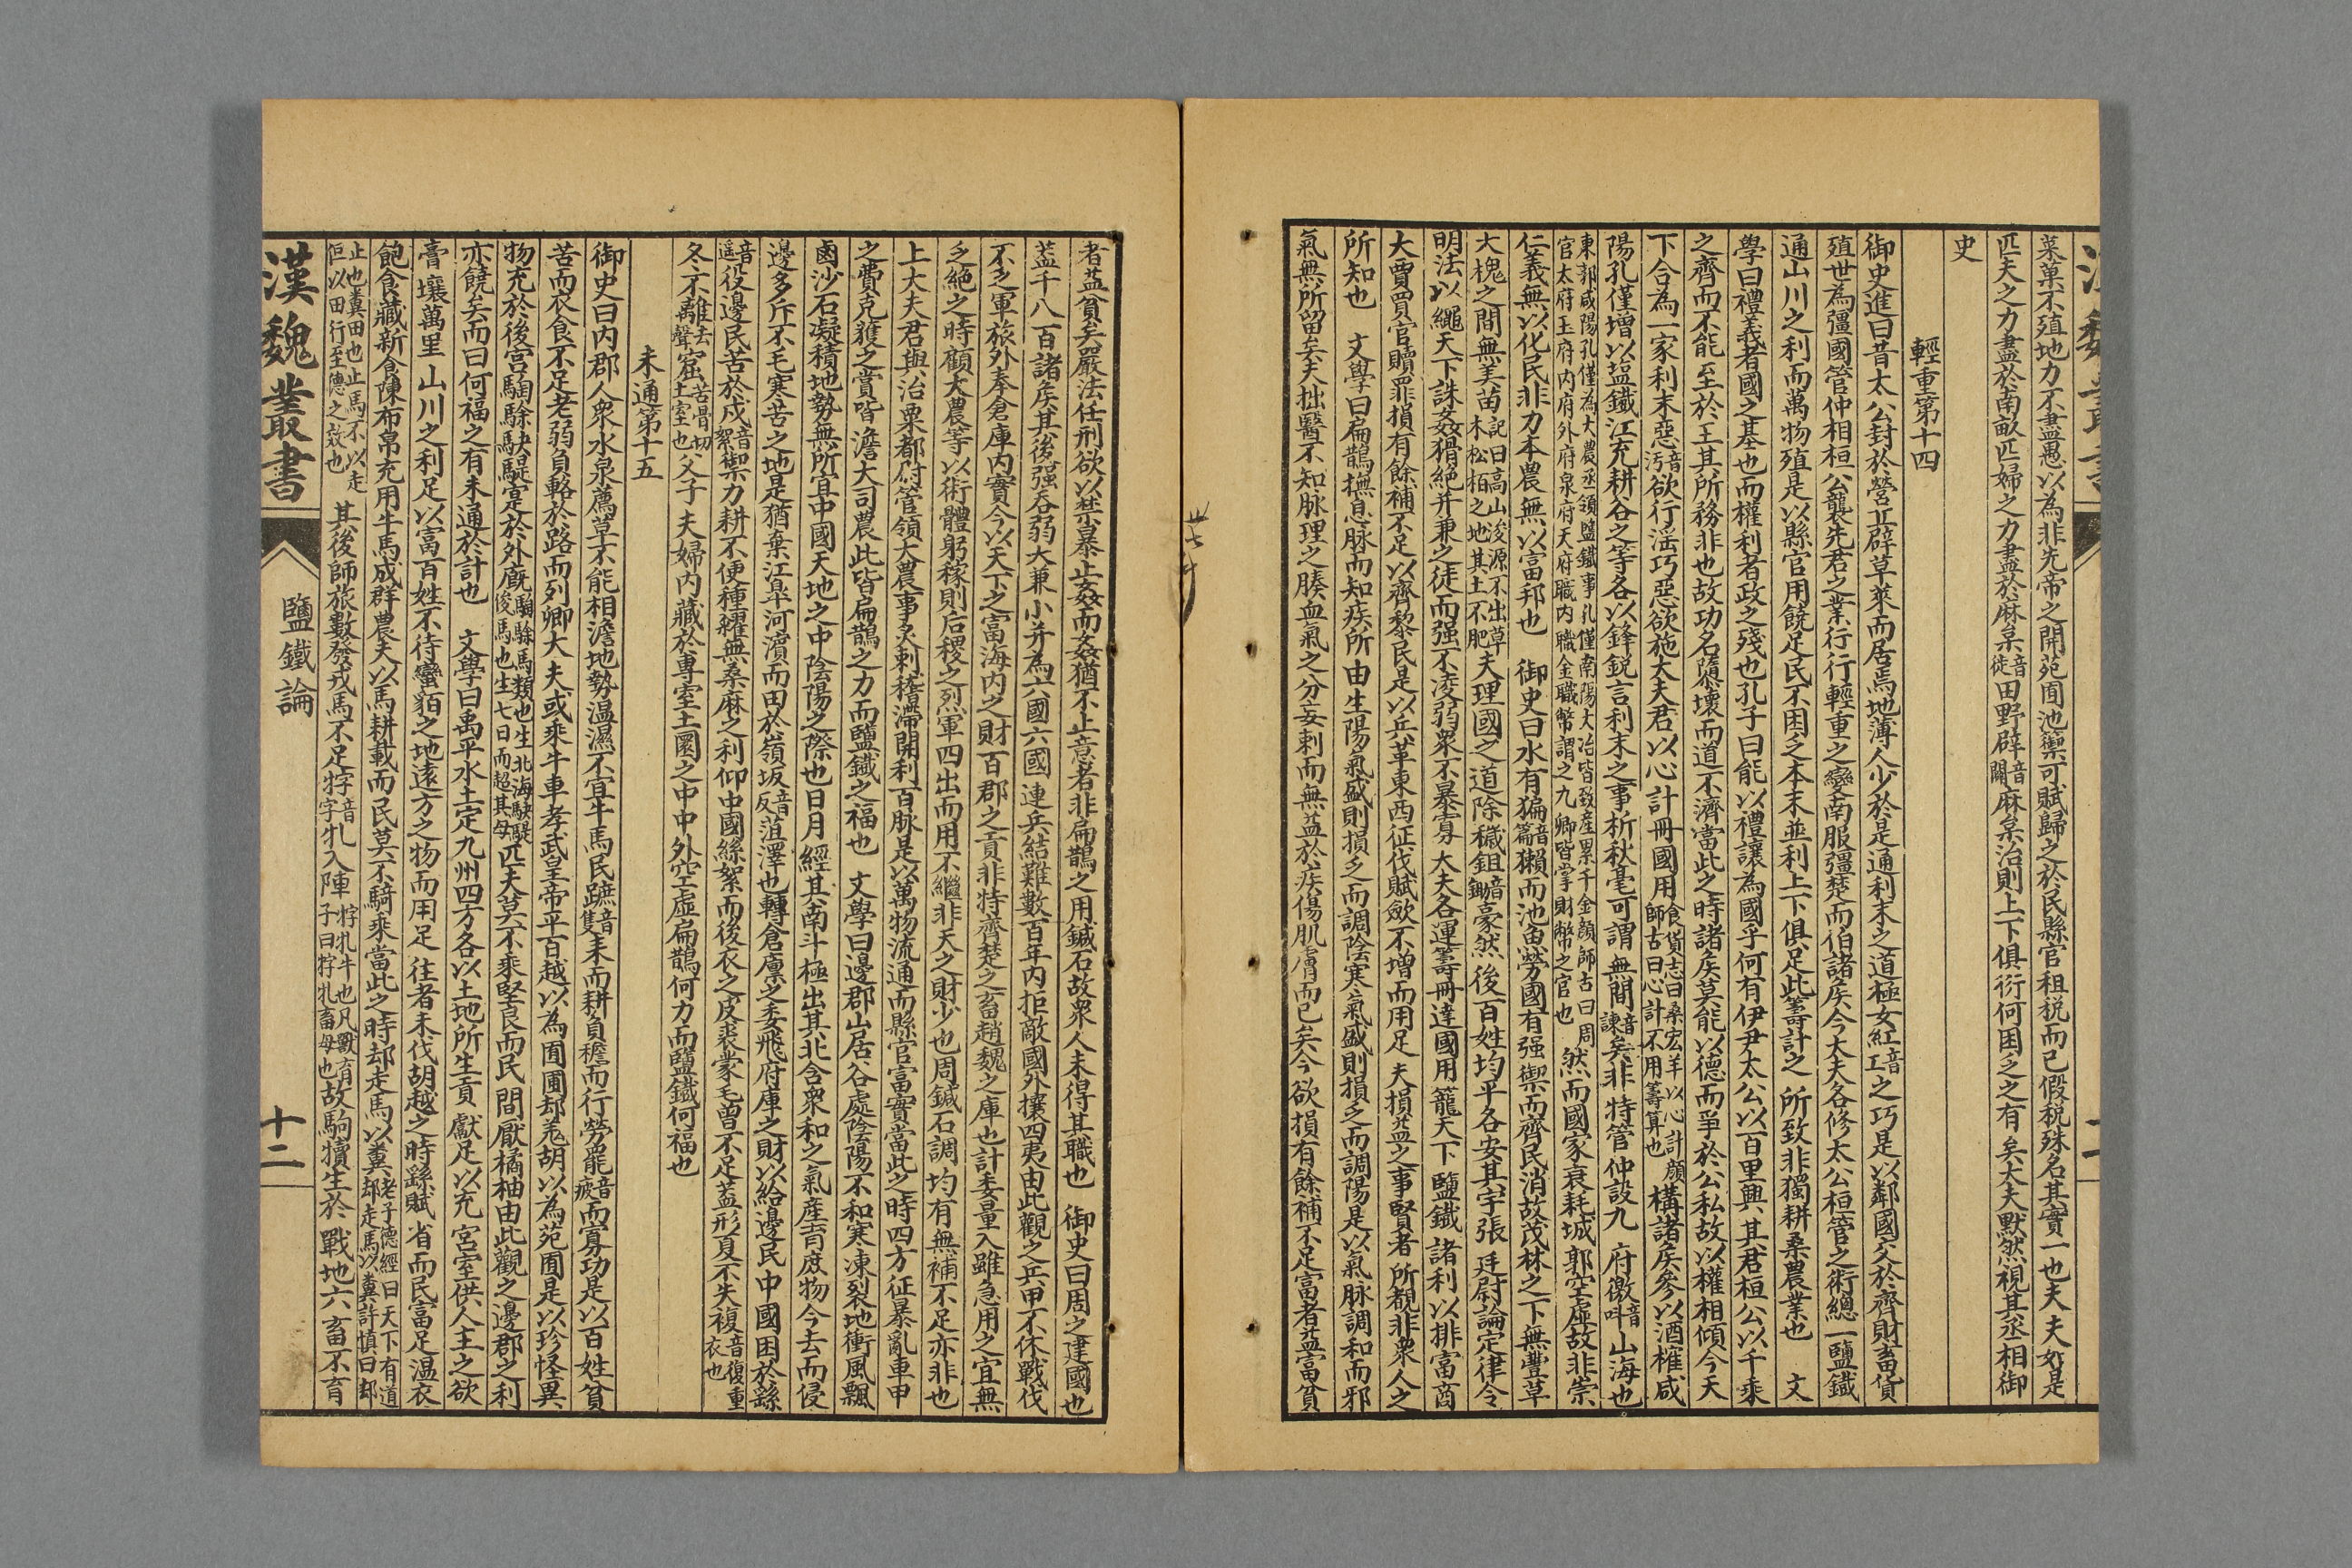 菜菓不殖地力不盡愚以為非先帝之開苑囿池籞可賦歸之於民縣官租税而已假税殊名其實一也夫夫如是
匹夫之力盡於南畝匹婦之力盡於麻枲音徙田野辟音闢麻枲治則上下俱衍何困乏之有矣大夫默然視其丞相御
史
輕重第十四
御史進曰昔太公封於營丘辟草萊而居焉地薄人少於是通利末之道極女紅音工之巧是以鄰國交於齊財畜貨
殖世為彊國管仲相桓公襲先君之業行行輕重之變南服彊楚而伯諸矦今大夫各修太公桓管之術總一鹽鐵
通山川之利而萬物殖是以縣官用饒足民不困乏本末並利上下俱足此籌計之所致非獨耕桑農業也　文
學曰禮義者國之基也而權利者政之殘也孔子曰能以禮讓為國乎何有伊尹太公以百里興其君桓公以千乘
之齊而不能至於王其所務非也故功名隳壞而道不濟當此之時諸矦莫能以德而爭於公私故以權相傾今天
下合為一家利末惡音汚欲行淫巧惡欲施大夫君以心計冊國用食貨志曰桑宏羊以心計顔師古曰心計不用籌算也構諸矦參以酒榷咸
陽孔僅增以塩鐵江充耕谷之等各以鋒鋭言利末之事析秋毫可謂無間音諫矣非特管仲設九府徼音叫山海也
東郭咸陽孔僅為大農丞領鹽鐵事孔僅南陽大冶皆致産累千金顔師古曰周官太府玉府内府外府泉府天府職内職金職幣謂之九卿皆掌財幣之官也然而國家衰耗城郭空虛故非崇
仁義無以化民非力本農無以富邦也　御史曰水有猵音篇獺而池魚勞國有强禦而齊民消故茂林之下無豐草
大槐之間無美苗記曰高山浚源不出草木松柏之地其土不肥夫理國之道除穢鉏音鋤豪然後百姓均平各安其宇張廷尉論定律令
明法以繩天下誅姦猾絶并兼之徒而强不凌弱衆不暴寡大夫各運籌冊達國用籠天下鹽鐵諸利以排富商
大賈買官贖罪損有餘補不足以齊黎民是以兵革東西征伐賦歛不增而用足夫損益之事賢者所覩非衆人之
所知也　文學曰扁鵲撫息脉而知疾所由生陽氣盛則損乏而調陰寒氣盛則損乏而調陽是以氣脉調和而邪
氣無所留矣夫拙醫不知脉理之腠血氣之分妄刺而無益於疾傷肌膚而已矣今欲損有餘補不足富者益富貧
者益貧矣嚴法任刑欲以禁暴止姦而姦猶不止意者非扁鵲之用鍼石故衆人未得其職也　御史曰周之建國也
葢千八百諸矦其後强吞弱大兼小并為六國六國連兵結難數百年内拒敵國外攘四夷由此觀之兵甲不休戰伐
不乏軍旅外奉倉庫内實今以天下之富海内之財百郡之貢非特齊楚之畜趙魏之庫也計委量入雖急用之宜無
乏絶之時顧大農等以術體躬稼則后稷之烈軍四出而用不繼非天之財少也周鍼石調均有無補不足亦非也
上大夫君與治粟都尉管領大農事灸刺稽滯開利百脉是以萬物流通而縣官富實當此之時四方征暴亂車甲
之費克獲之賞皆澹大司農此皆扁鵲之力而鹽鐵之福也　文學曰邊郡山居谷處陰陽不和寒凍裂地衝風飄
鹵沙石凝積地勢無所宜中國天地之中陰陽之際也日月經其南斗極出其北含衆和之氣産育庶物今去而侵
邊多斥不毛寒苦之地是猶棄江皐河瀆而田於嶺坂音反葅澤也轉倉廪之委飛府庫之財以給邊民中國困於繇
音遥役邊民苦於戍音絮禦力耕不便種糴無桑麻之利仰中國絲絮而後衣之皮裘蒙毛曾不足葢形夏不失複音復重衣也
冬不離去聲窟苦骨切土室也父子夫婦内藏於專室土圜之中中外空虛扁鵲何力而鹽鐵何福也
未通第十五
御史曰内郡人衆水泉薦草不能相澹地勢温濕不宜牛馬民蹠音隻耒而耕負擔而行勞罷音疲而寡功是以百姓貧
苦而衣食不足老弱負輅於路而列卿大夫或乘牛車孝武皇帝平百越以為囿圃却羌胡以為苑囿是以珍怪異
物充於後宫騊駼駃騠寔於外廐騊駼馬類也生北海駃騠俊馬也生七日而超其母匹夫莫不乘堅良而民間厭橘柚由此觀之邊郡之利
亦饒矣而曰何福之有未通於計也　文學曰禹平水土定九州四方各以土地所生貢獻足以充宫室供人主之欲
膏壤萬里山川之利足以富百姓不待蠻貊之地遠方之物而用足往者未伐胡越之時繇賦省而民富足温衣
飽食藏新食陳布帛充用牛馬成群農夫以馬耕載而民莫不騎乘當此之時却走馬以糞老子德經曰天下有道却走馬以糞許慎曰却
止也糞田也止馬不以走但以田行至德之效也其後師旅數發戎馬不足牸音字牝入陣牸牝牛也凡獸有子曰牸牝畜母也故駒犢生於戰地六畜不育
漢魏叢書
鹽鐵論
十二